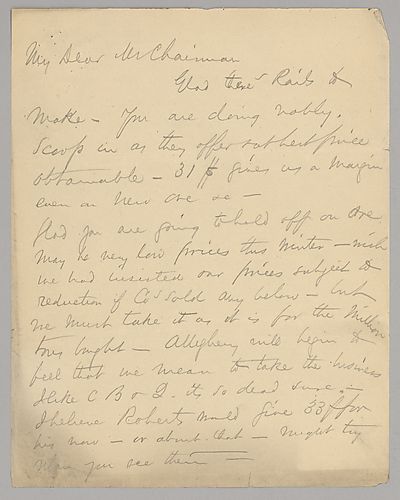 My Dear Mr Chairman
Glad there's Rails to
Make – You are doing nobly.
Scoop in as they offer at best price
obtainable – 31 $ gives us a Margin
even on New ore so –
Glad you are going to hold off on ore
May be very low prices this Winter – wish
we had insisted our prices subject to
reduction if Co's sold any below – but
we must take it as it is for the Million
tons bought – Allegheny will begin to
feel that we mean to take the business
I like C B & Q. its so dead sure –
I believe Roberts would give 33 $ for
his now – or about that – might try
when you see them –